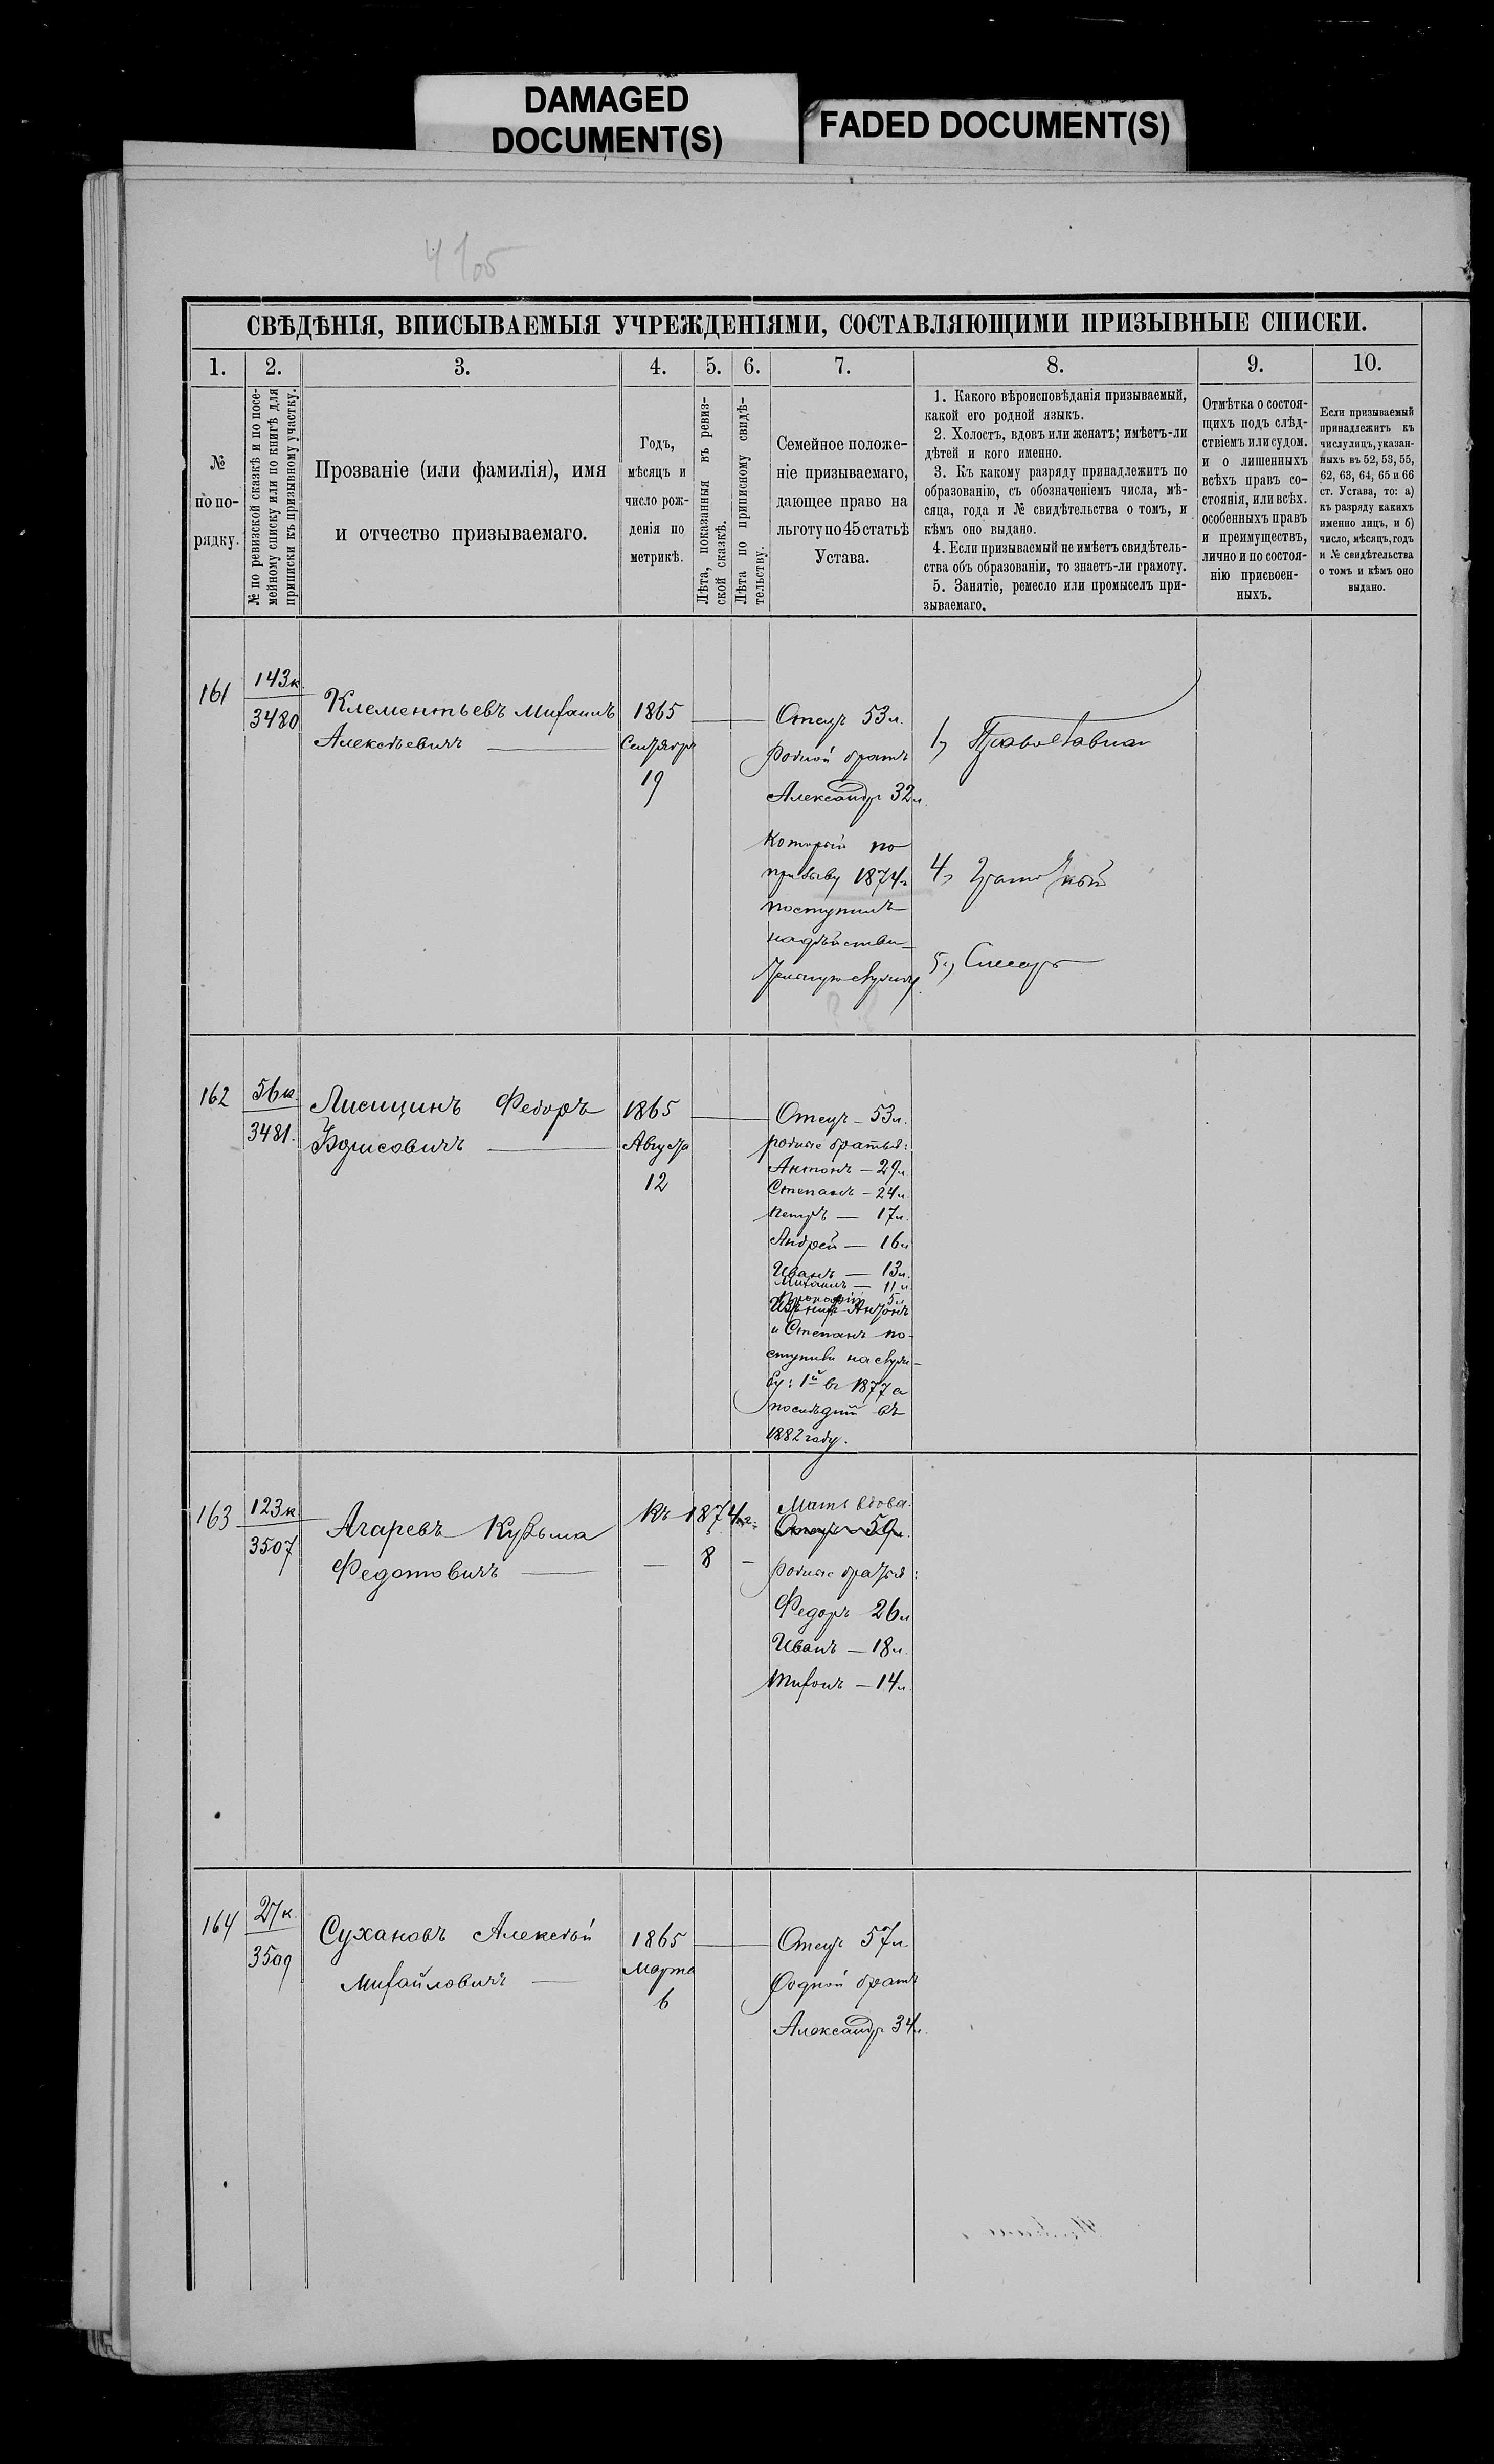 DAMAGED
DOCUMENT(S)
FADED DOCUMENT(S)
СВѢДѢНІЯ, ВПИСЫВАЕМЫЯ УЧРЕЖДЕНІЯМИ, СОСТАВЛЯЮЩИМИ ПРИЗЫВНЫЕ СПИСКИ.
1.
2.
3.
4.
5.
6.
7.
8.
9.
10.
№
по по-
рядку.
№ по ревизской сказкѣ и по посе-
мейному списку или по книгѣ для
приписки къ призывному участку.
Прозваніе (или фамилія), имя
и отчество призываемаго.
Годъ,
мѣсяцъ и
число рож-
денія по
метрикѣ.
Лѣта, показанныя въ ревиз-
ской сказкѣ.
Лѣта по приписному свидѣ-
тельству.
Семейное положе-
ніе призываемаго,
дающее право на
льготу по 45 статьѣ
Устава.
1. Какого вѣроисповѣданія призываемый,
какой его родной языкъ.
2. Холостъ, вдовъ или женатъ; имѣетъ-ли
дѣтей и кого именно.
3. Къ какому разряду принадлежитъ по
образованію, съ обозначеніемъ числа, мѣ-
сяца, года и № свидѣтельства о томъ, и
кѣмъ оно выдано.
4. Если призываемый не имѣетъ свидѣтель-
ства объ образованіи, то знаетъ-ли грамоту.
5. Занятіе, ремесло или промыселъ при-
зываемаго.
Отмѣтка о состоя-
щихъ подъ слѣд-
ствіемъ или судом.
и о лишенныхъ
всѣхъ правъ со-
стоянія, или всѣх.
особенныхъ правъ
и преимуществъ,
лично и по состоя-
нію присвоен-
ныхъ.
Если призываемый
принадлежитъ къ
числу лицъ, указан-
ныхъ въ 52, 53, 55,
62, 63, 64, 65 и 66
ст. Устава, то: а)
къ разряду какихъ
именно лицъ, и б)
число, мѣсяцъ, годъ
и № свидѣтельства
о томъ и кѣмъ оно
выдано.
161
143к.
3480
Клементьевъ Михаилъ
Алексѣевичъ
1865
Сентября
19
Отецъ 53 л.
родной братъ
Александръ 32 л.
который по
призыву 1874 г
поступилъ
на дѣйстви-
тельную службу.
1,
4,
5.,
Слесарь
162
56к.
3481.
Лисицинъ Федоръ
Борисовичъ
1865
Августа
12
Отецъ – 53 л.
родные братья:
Антонъ – 29 л.
Степанъ – 24 л.
Петръ — 17 л.
Андрей — 16 л
Иванъ — 13 л.
Михаилъ — 11 л
Прокофій 5 л
Изъ нихъ Антонъ
и Степанъ по-
ступили на служ-
бу: 1й въ 1877 а
послѣдній въ
1882 году.
163
123к
3507
Агаревъ Кузьма
Федотовичъ
Къ 1874 г.
— 8 –
Мать вдова.
Отецъ 59 л.
родные братья:
Федоръ 26 л
Иванъ — 18 л.
— 14 л
164
27к.
3509
Сухановъ Алексѣй
Михайловичъ
1865
Марта
6
Отецъ 57 л
Родной братъ
Александръ 34 л.